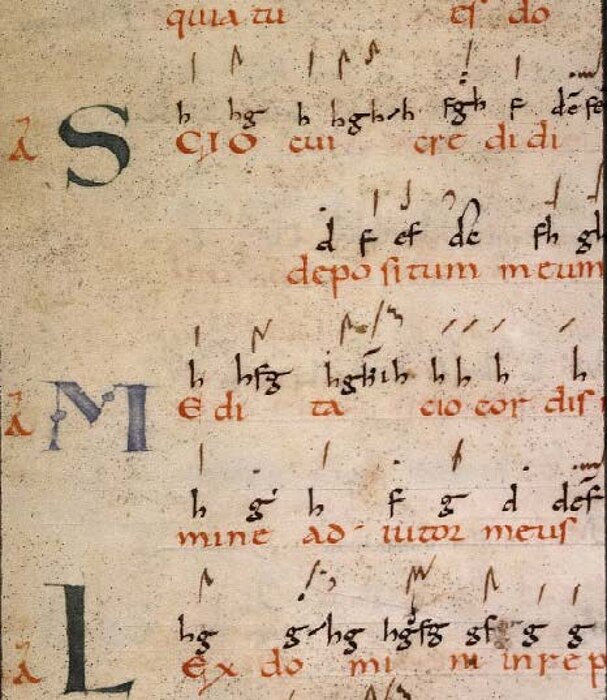 quia tu es do
h hg h hghh fgh f defe
S CIO cui cre di di
d f ef de fh gh
depo situm meum
h hfg h h h h
M E di ta cio cor dis
h g h f g d def
mine ad iutor meus
hg g hg hgfg gf g g
L Ex do mi ni inrep